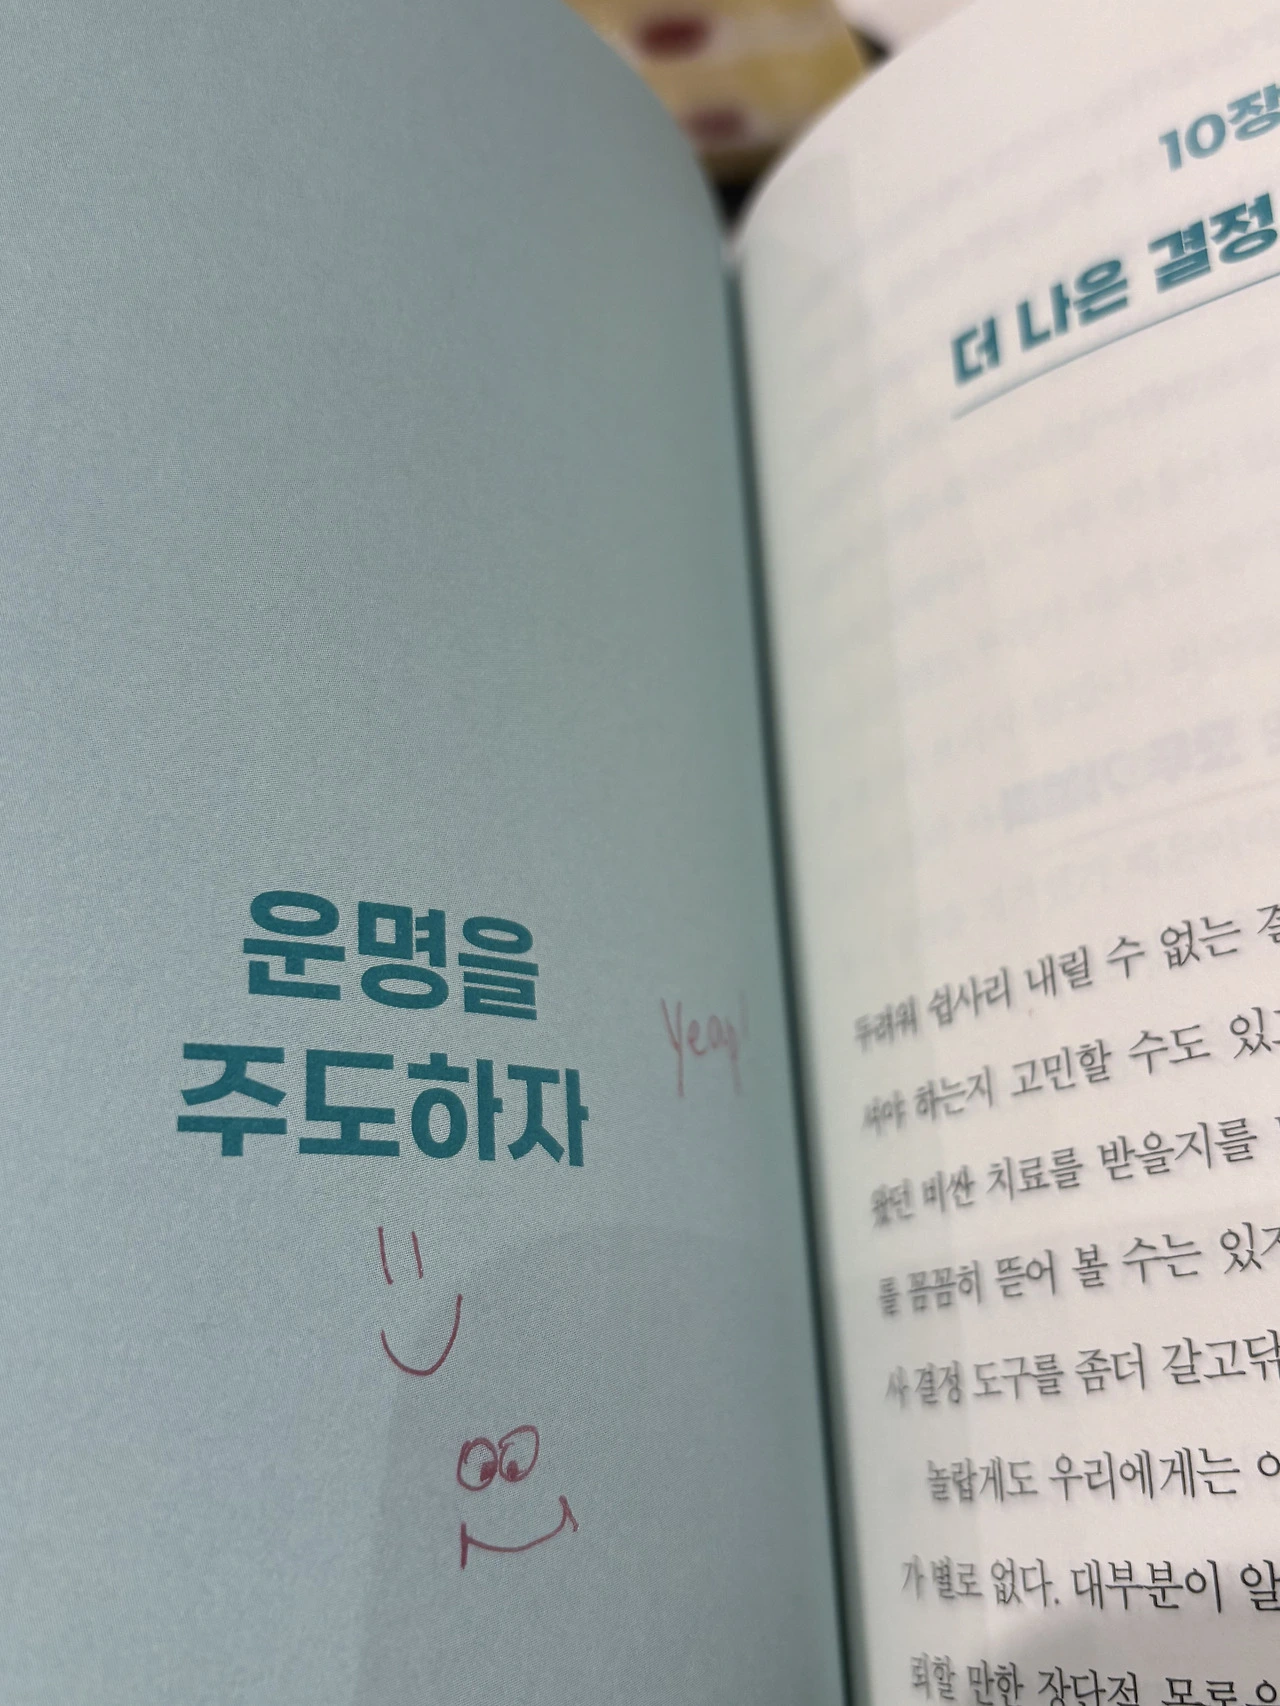 운명을
주도하자
Yeap!
10장
더 나은 결정
두려워 쉽사리 내릴 수 없는
셔야 하는지 고민할 수도 있
왔던 비싼 치료를 받을지를
를 꼼꼼히 뜯어 볼 수는 있
사 결정 도구를 좀더 갈고닦
놀랍게도 우리에게는
가 별로 없다. 대부분이 알
뢰할 만한 장단점 목록